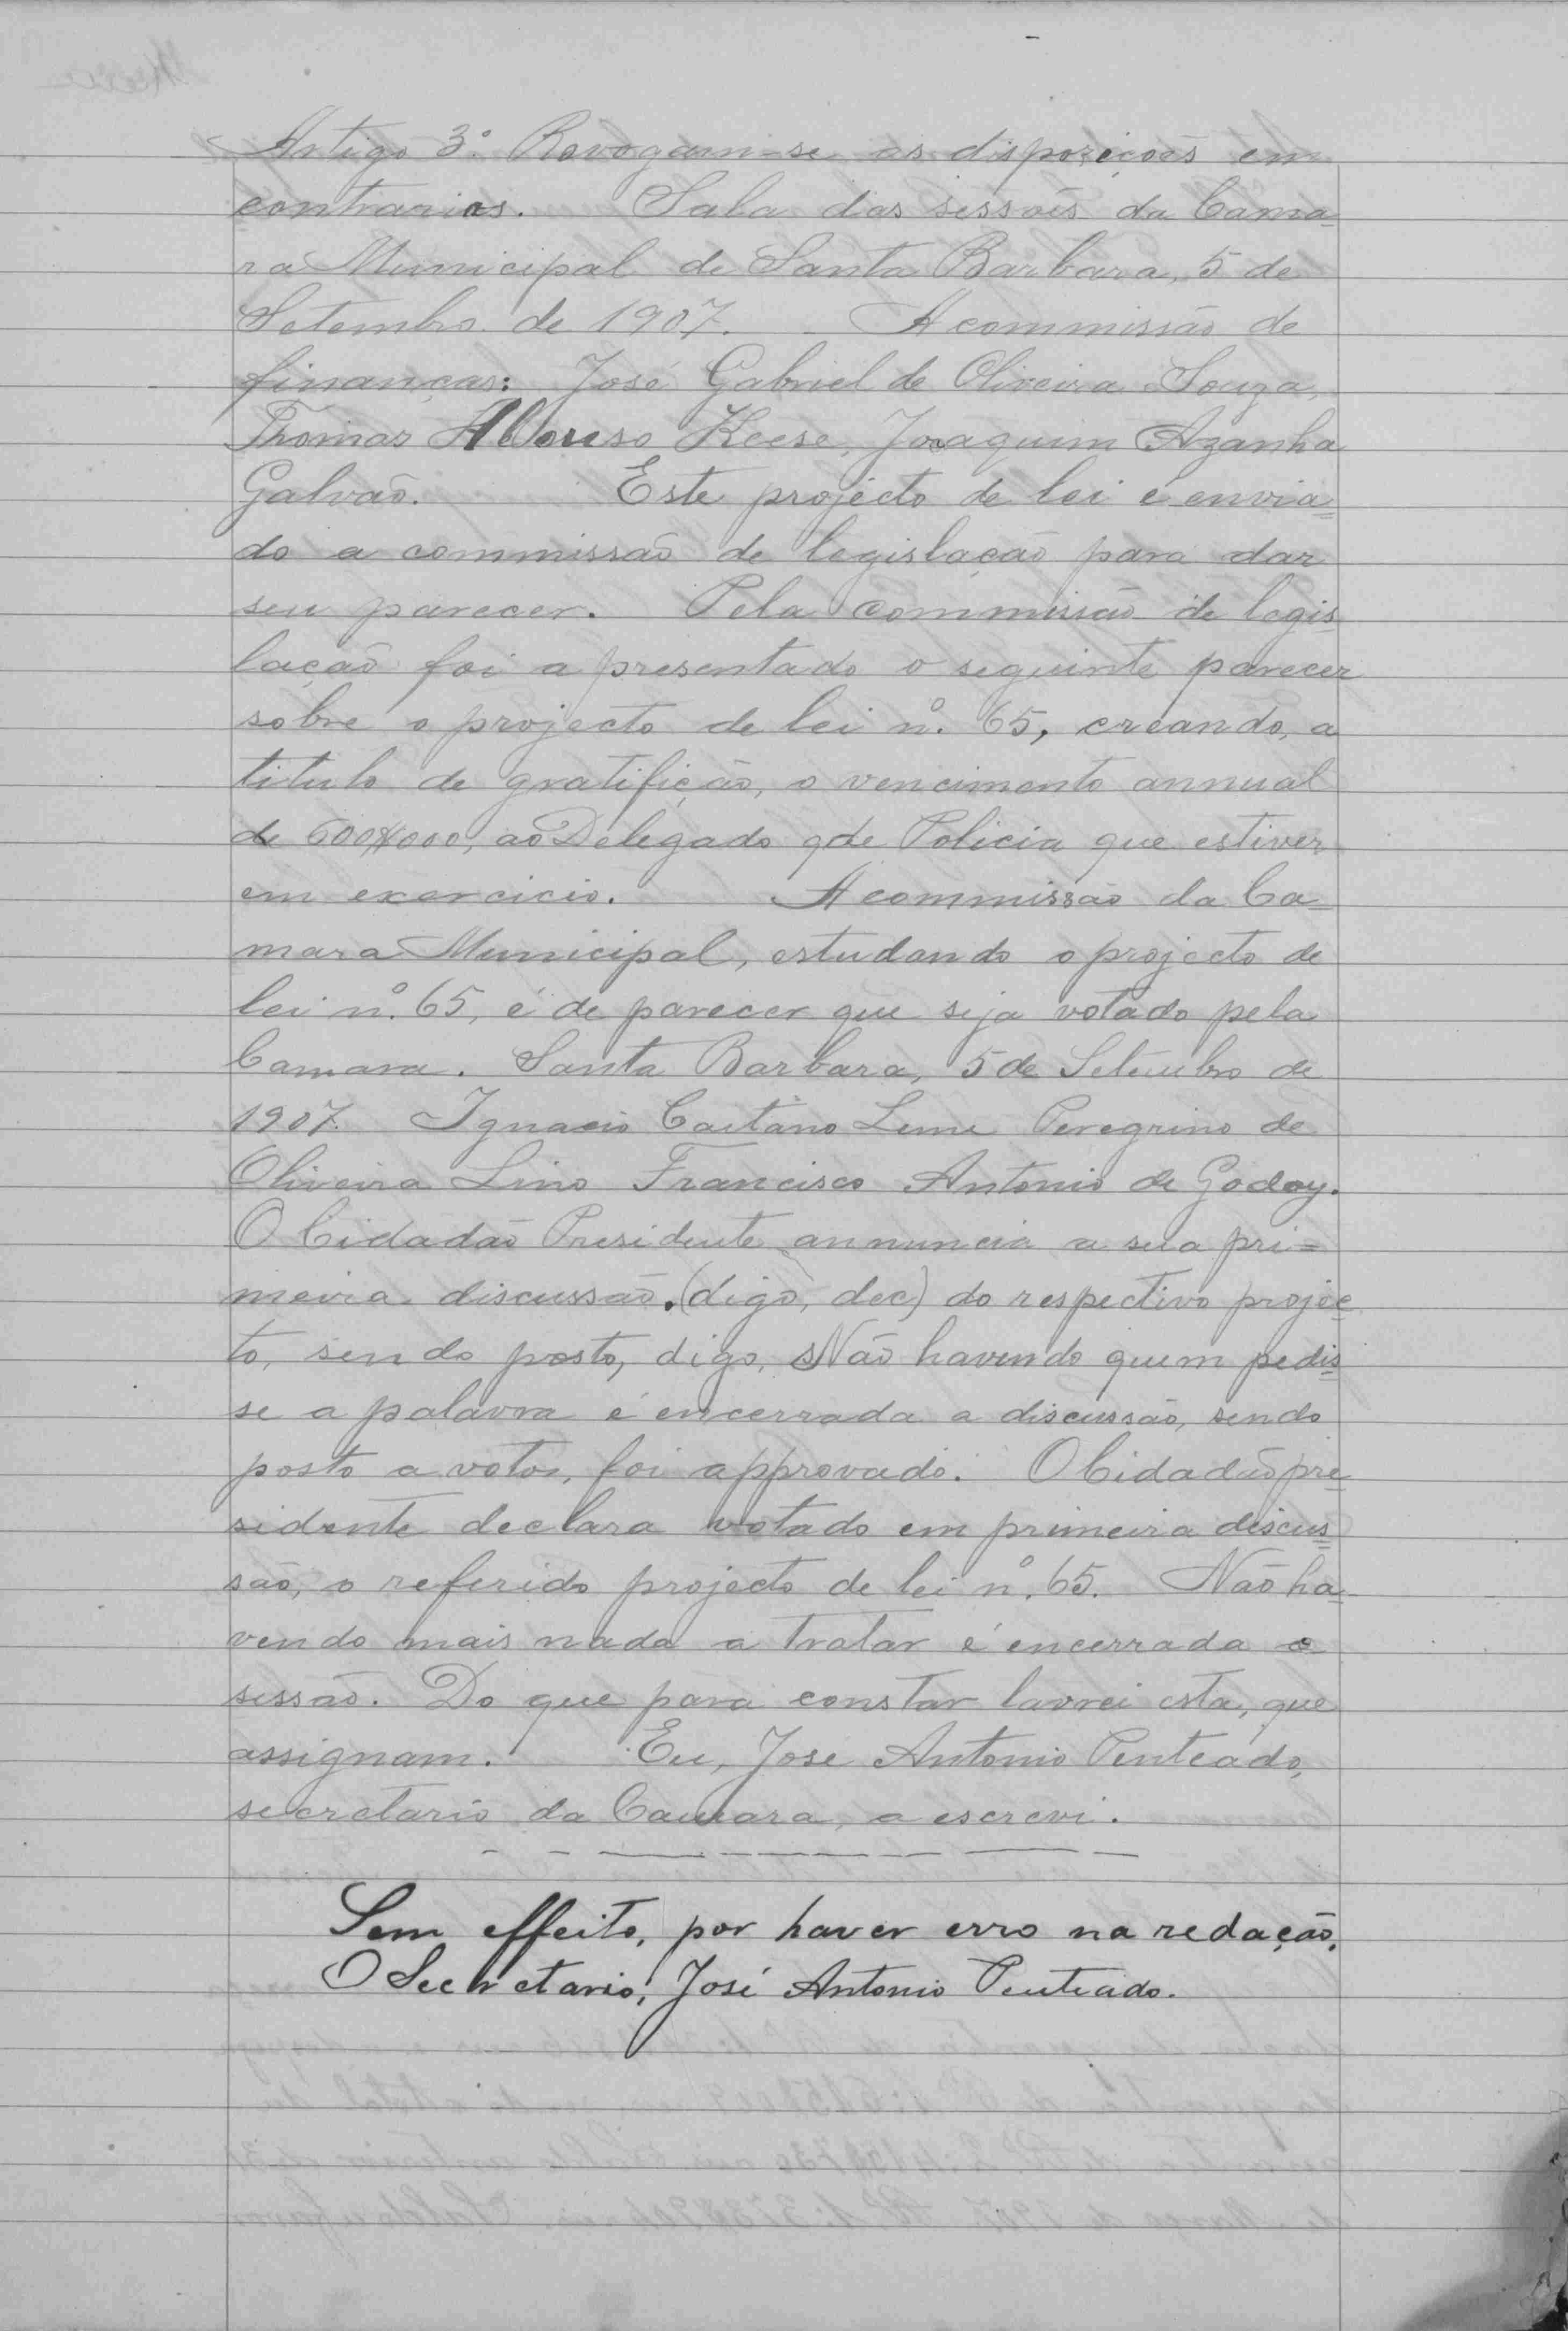 Artigo 3º. Revogam-se as dispozicoẽs em
contrarios. Sala das sessoẽs da Cama-
ra Municipal de Santa Barbara, 5 de
Setembro de 1907. A commissão de
finanças: José Gabriel de Oliveira Souza,
Thomas Alonso Keese, Joaquim Azanha
Galvaõ. Este projécto de lei é envia=
do a commissaõ de legislaçaõ para dar
seu parecer. Pela commissão de legis-
laçaõ foi apresentado o seguinte parecer
sobre o projecto de lei nº. 65, creando, a
titulo de gratifição, o vencimento annual
de 600$000, ao Delegado qde Policia que estiver
em exercicio. A commissão da Ca=
mara Municipal, estudando o projecto de
lei nº. 65, é de parecer que seja votado pela
Camara. Santa Barbara, 5 de Setembro de
1907. Ignacio Caetano Leme Peregrino de
Oliveira Lino Francisco Antonio de Godoy.
O Cidadão Presidente annuncia a sua pri=
meira discussaõ. (digo, dec) do respectivo projec-
to, sendo posto, digo, Não havendo quem pedis=
se a palavra é encerrada a discussão, sendo
posto a votos, foi approvado. O Cidadão pre-
sidente declara votado em primeira discus=
são, o referido projecto de lei nº. 65. Não ha-
vendo mais nada a tratar é encerrada a
sessão. Do que para constar lavrei esta, que
assignam. Eu, José Antonio Penteado,
secretario da Camara, a escrevi.
Sem effeito, por haver erro na redação.
O Secretario, José Antonio Penteado.